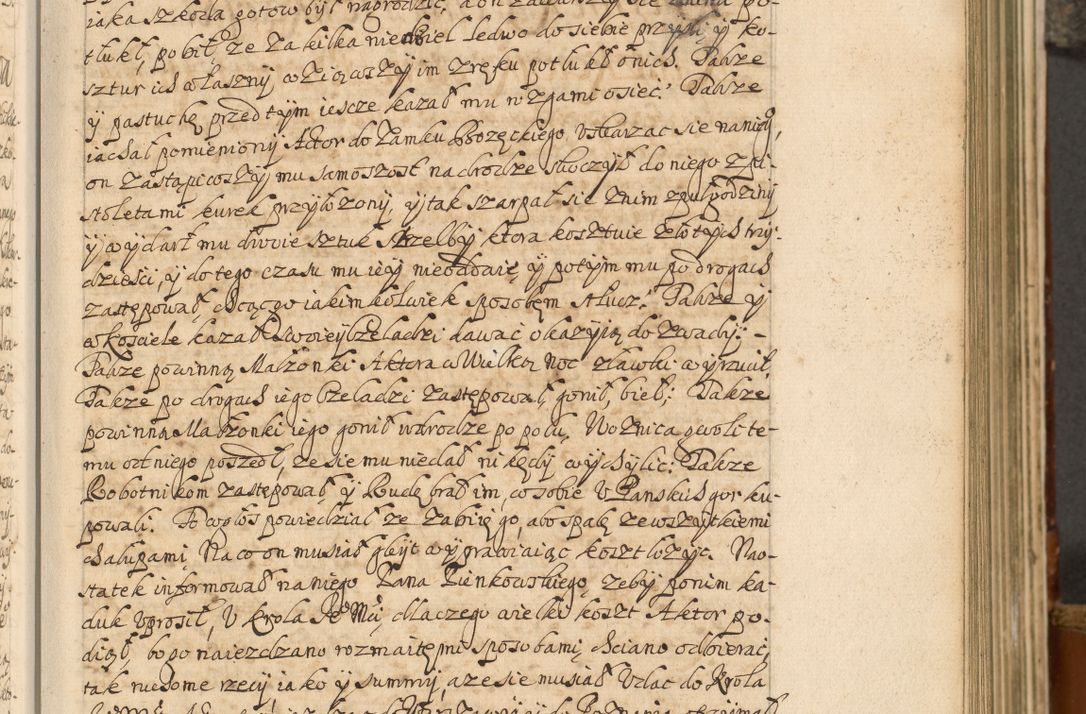 iaka szkoda gotow był nagrodzic, a on
tlukł, pobił, ze za kilka niedziel ledwo do siebie przyszli, y ko-
sztur ich własznij wziąwszy im z ręku potlukł o nich. Takze
y pastuchę przed tym iescze kazał mu rozgami osiec. Takze
iachał pomieniony Aktor do Zamku Bozęckiego uskarzac sie na niego,
on zastąpiwszy mu samoszost na drodze skoczył do niego z pi-
stoletami kurek przyłozony, y tak szarpał sie z nim z pul godziny
y wydarł mu dwoie sztuk strzelby ktora kosztuie złotych trzy-
dziesci, y do tego czasu mu iey nieoddaię y potym mu po drogach
zastępował, chcąc go iakim kolwiek sposobem stłucz. Takze y
w kosciele kazał swoiey czeladzi dawać okazyią do zwady. -
Takze powinną Małzonki Aktora w Wielką Noc z ławki wyrzucił,
Takze po drogach iego czeladzi zastępował, gonił, bieł; Takze
powinną Małzonki iego gonił w drodze po polu, Woznica gwoli te-
mu od niego poszedł, ze sie mu niedał nikędy wychylic: Takze
Robotnikom zastępował y Rudę brał im, co sobie u Panskich gor ku-
powali. A wgłos powiedział ze zabię go, abo spalę ze wszytkiemi
chalupami, Na co on musiał gbyt wyprawiaiąc koszt lozyc. Nao-
statek informował na niego Pana Pienkowskiego, zeby po nim ka-
duk uprosił, u Krola Je Mci, dlaczego wielki koszt Aktor po-
diął, bo go naiezdzano rozmaitemi sposobami, chciano odbierac,
tak ruchome rzeczy iako y summy, aze sie musiał udac do Krola